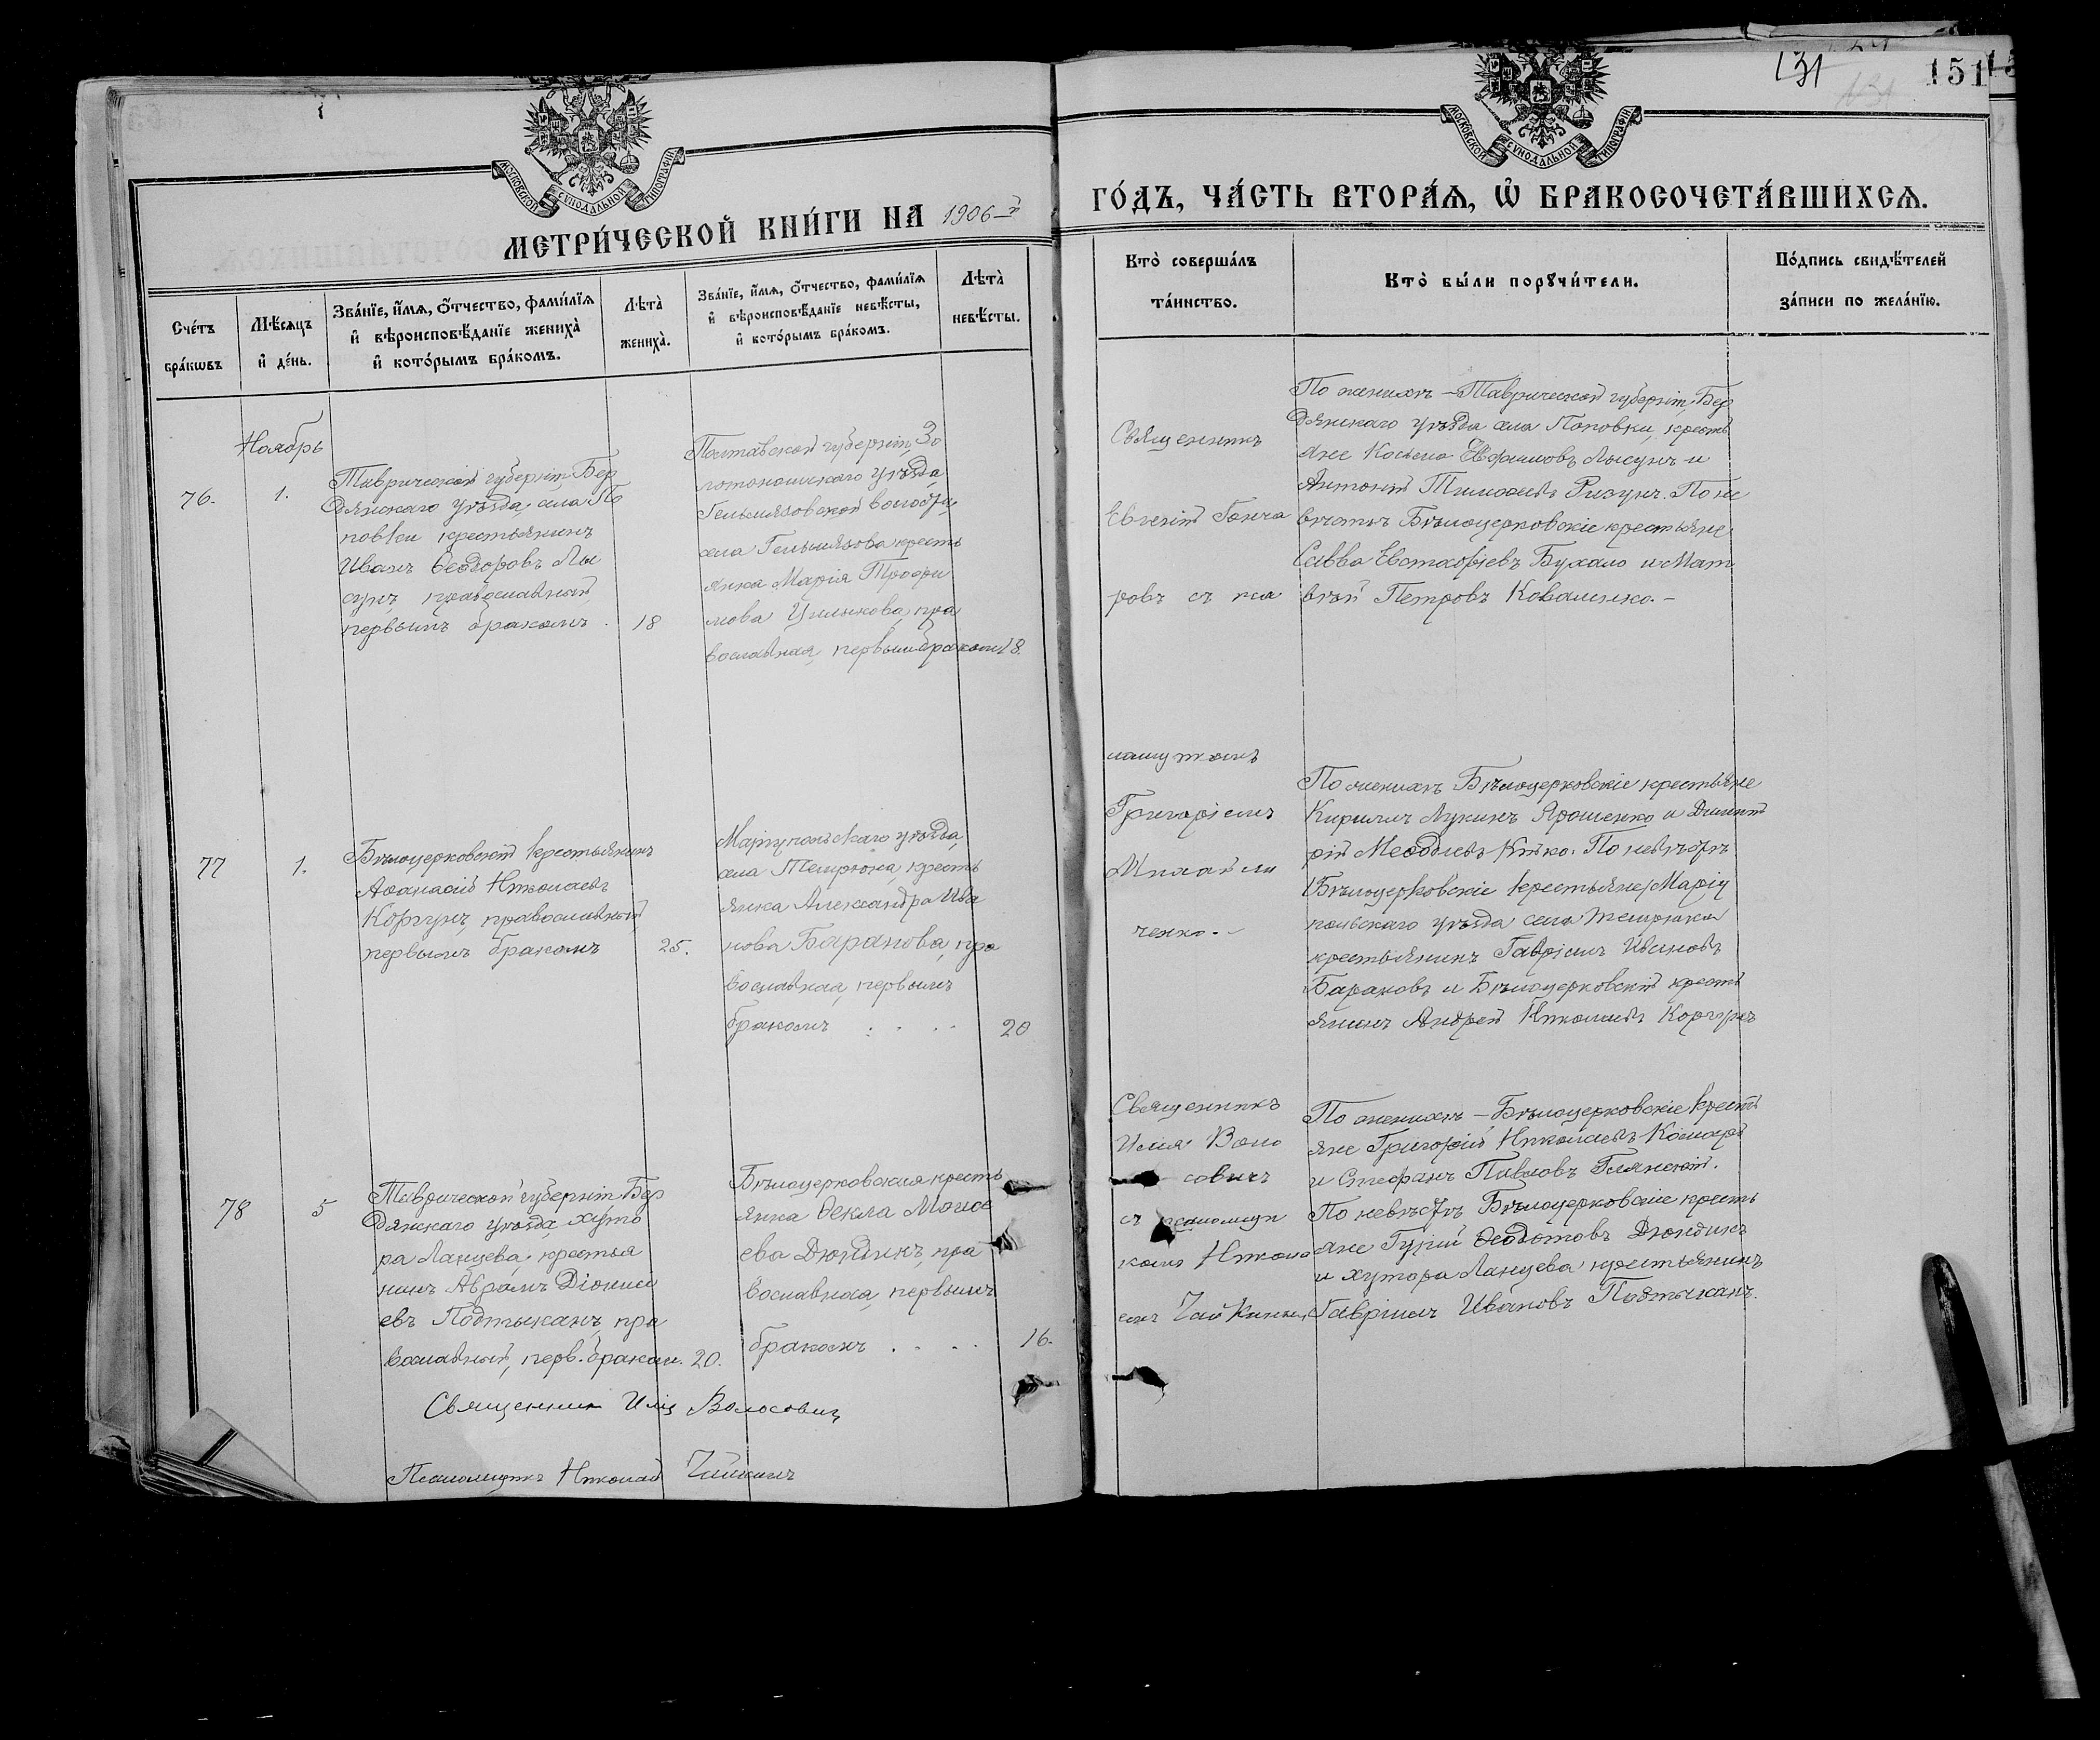 131
151
МОСКОВСКОЙ СУНОДАЛЬНОЙ ТИПОГРАФІИ
МЕТРИ́ЧЕСКОЙ КНИ́ГИ НА 1906-й
МОСКОВСКОЙ СУНОДАЛЬНОЙ ТИПОГРАФІИ
ГО́ДЪ, ЧА́СТЬ ВТОРА́Я, Ѽ БРАКОСОЧЕТА́ВШИХСЯ.
Сче́тъ бра́кѡвъ
Мѣ́сяцъ и҆ де́нь.
Зва́нїе, и҆́мѧ, ѻ҆́тчество, фами́лїѧ
и҆ вѣроисповѣ́данїе жениха̀
и҆ кото́рымъ бра́комъ.
Лѣ́та̀ жениха̀.
Зва́нїе, и҆́мѧ, ѻ҆́тчество, фами́лїѧ
и҆ вѣроисповѣ́данїе невѣ́сты,
и҆ кото́рымъ бра́комъ.
Лѣ́та̀ невѣ́сты.
Кто̀ соверша́лъ
та́инство.
Кто̀ бы́ли порꙋчи́тели.
По́дпись свидѣ́телей
за́писи по жела́нїю.
Ноябрь
76.
1.
Таврической губерніи, Бер
дянскаго уѣзда, села По
повки крестьянинъ
Иванъ Ѳеодоровъ Лы
сунъ, православный,
первымъ бракомъ.
18
Полтавской губерніи, Зо
лотоношскаго уѣзда,
Гельмязовской волости,
села Гельмязова кресть
янка Марія Трофи
мова Цишкова, пра
вославная, первымъ бракомъ
18.
Священникъ
Евгеній Гонча
ровъ съ пса
ломщикомъ
Григоріемъ
Михайли
ченко.
По женихѣ – Таврической губерніи, Бер
дянскаго уѣзда села Поповки, кресть
яне Косьма Евфимовъ Лысунъ и
Антоній Тимоѳеевъ Ризунъ. По не
вѣстѣ Бѣлоцерковскіе крестьяне
Савва Евстафіевъ Бухало и Мат
вѣй Петровъ Коваленко. –
77
1.
Бѣлоцерковскій крестьянинъ
Аѳанасій Николаевъ
Коргунъ, православный,
первымъ бракомъ
25.
Маріупольскаго уѣзда,
села Темрюка, кресть
янка Александра Ива
нова Баранова, пра
вославная, первымъ
бракомъ . . . .
20
По женихѣ Бѣлоцерковскіе крестьяне
Кириллъ Лукинъ Ярошенко и Димит
рій Меѳодіевъ Кійко. По невѣстѣ
Бѣлоцерковскіе крестьяне Маріу
польскаго уѣзда села Темрюка
крестьянинъ Гавріилъ Ивановъ
Барановъ и Бѣлоцерковскій кресть
янинъ Андрей Николаевъ Коргунъ
78
5
Таврической губерніи, Бер
дянскаго уѣзда, хуто
ра Ланцева, крестья
нинъ Аврамъ Діонисі
евъ Подтыканъ, пра
вославный, перв. бракомъ.
20.
Бѣлоцерковская кресть
янка Ѳекла Моисе
ева Дюндикъ, пра
вославная, первымъ
бракомъ . . . .
16.
Священникъ
Илія Воло
совичъ
съ псаломщи
комъ Никола
емъ Чайкинымъ
По женихѣ – Бѣлоцерковскіе кресть
яне Григорій Николаевъ Комаръ
и Стефанъ Павловъ Глянскій.
По невѣстѣ Бѣлоцерковскіе кресть
яне Гурій Ѳеодотовъ Дюндикъ
и хутора Ланцева крестьянинъ
Гавріилъ Ивановъ Подтыканъ.
Священникъ Илія Волосовичъ
Псаломщикъ Николай Чайкинъ